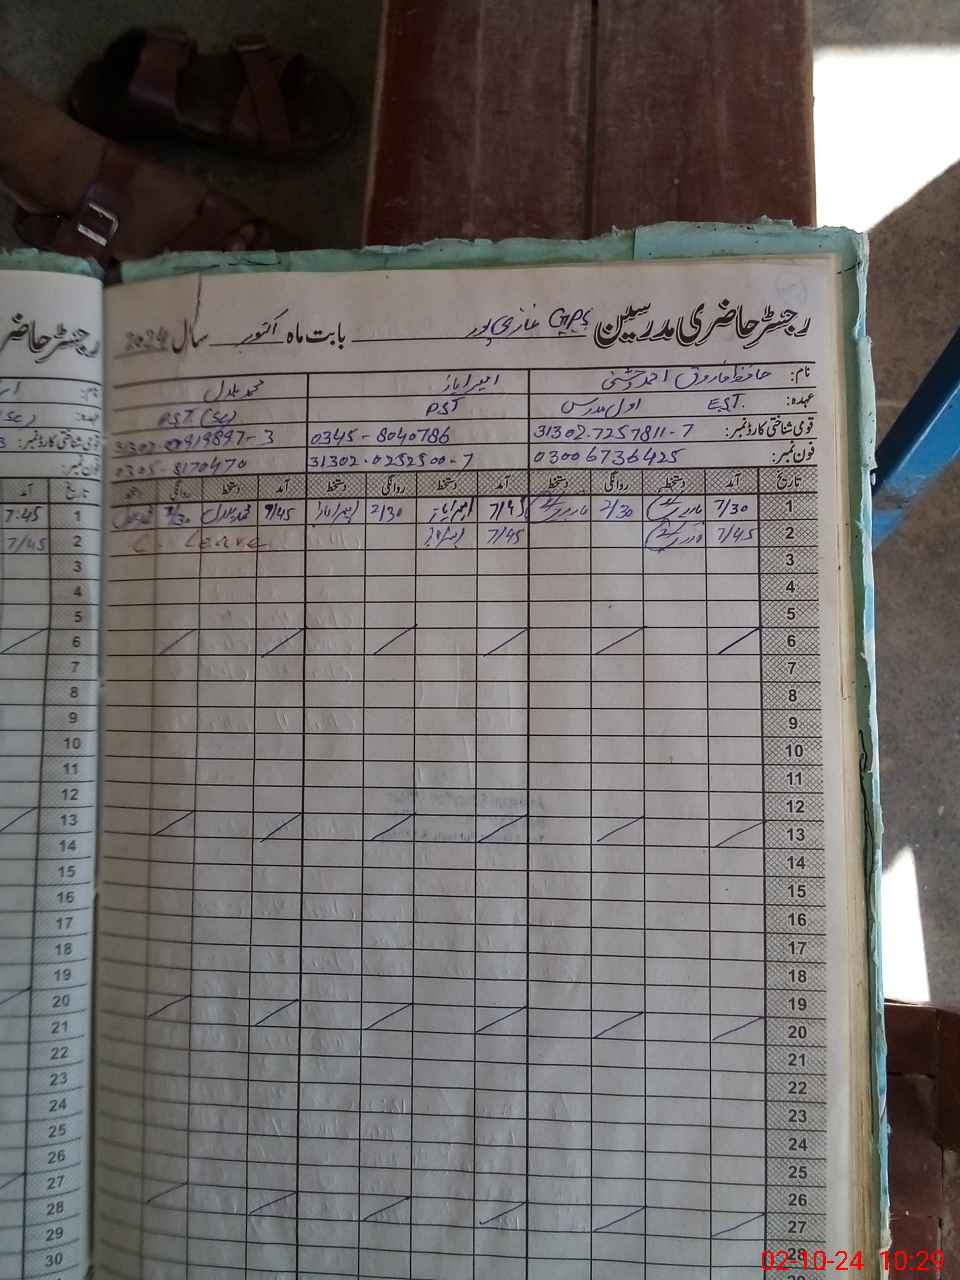 رجسٹر حاضری مدرسین GPS غازی پور بابت ماہ اکتوبر سال 2024
نام: حافظ فاروق احمد چشتی امیر ایاز محمد بلال
عہدہ: EST. اول مدرس PST PST (Sc)
قومی شناختی کارڈ نمبر: 31302-7257811-7 0345-8040786 31302-0919897-3
فون نمبر: 03006736425 31302-0252500-7 0305-8170470
تاریخ آمد دستخط روانگی دستخط آمد دستخط روانگی دستخط آمد دستخط روانگی
1 7/30 2/30 7/45 امیر ایاز 2/30 امیر ایاز 9/45 محمد بلال 2/30 محمد بلال
2 7/45 7/45 امیر ایاز C. Leave
3
4
5
6
7
8
9
10
11
12
13
14
15
16
17
18
19
20
21
22
23
24
25
26
27
28
رجسٹر حاضر
قومی شناختی کارڈ نمبر:
فون نمبر:
تاریخ آمد
1 7:45
2 7/45
3
4
5
6
7
8
9
10
11
12
13
14
15
16
17
18
19
20
21
22
23
24
25
26
27
28
29
30
02-10-24 10:29